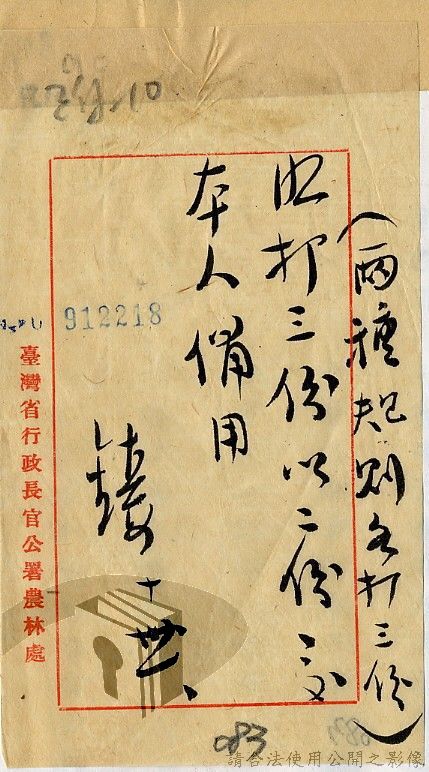 (兩種規則各打三份)
打三份以二份交
本人備用
十 卅一
912218
臺灣省行政長官公署農林處
083
請合法使用公開之影像